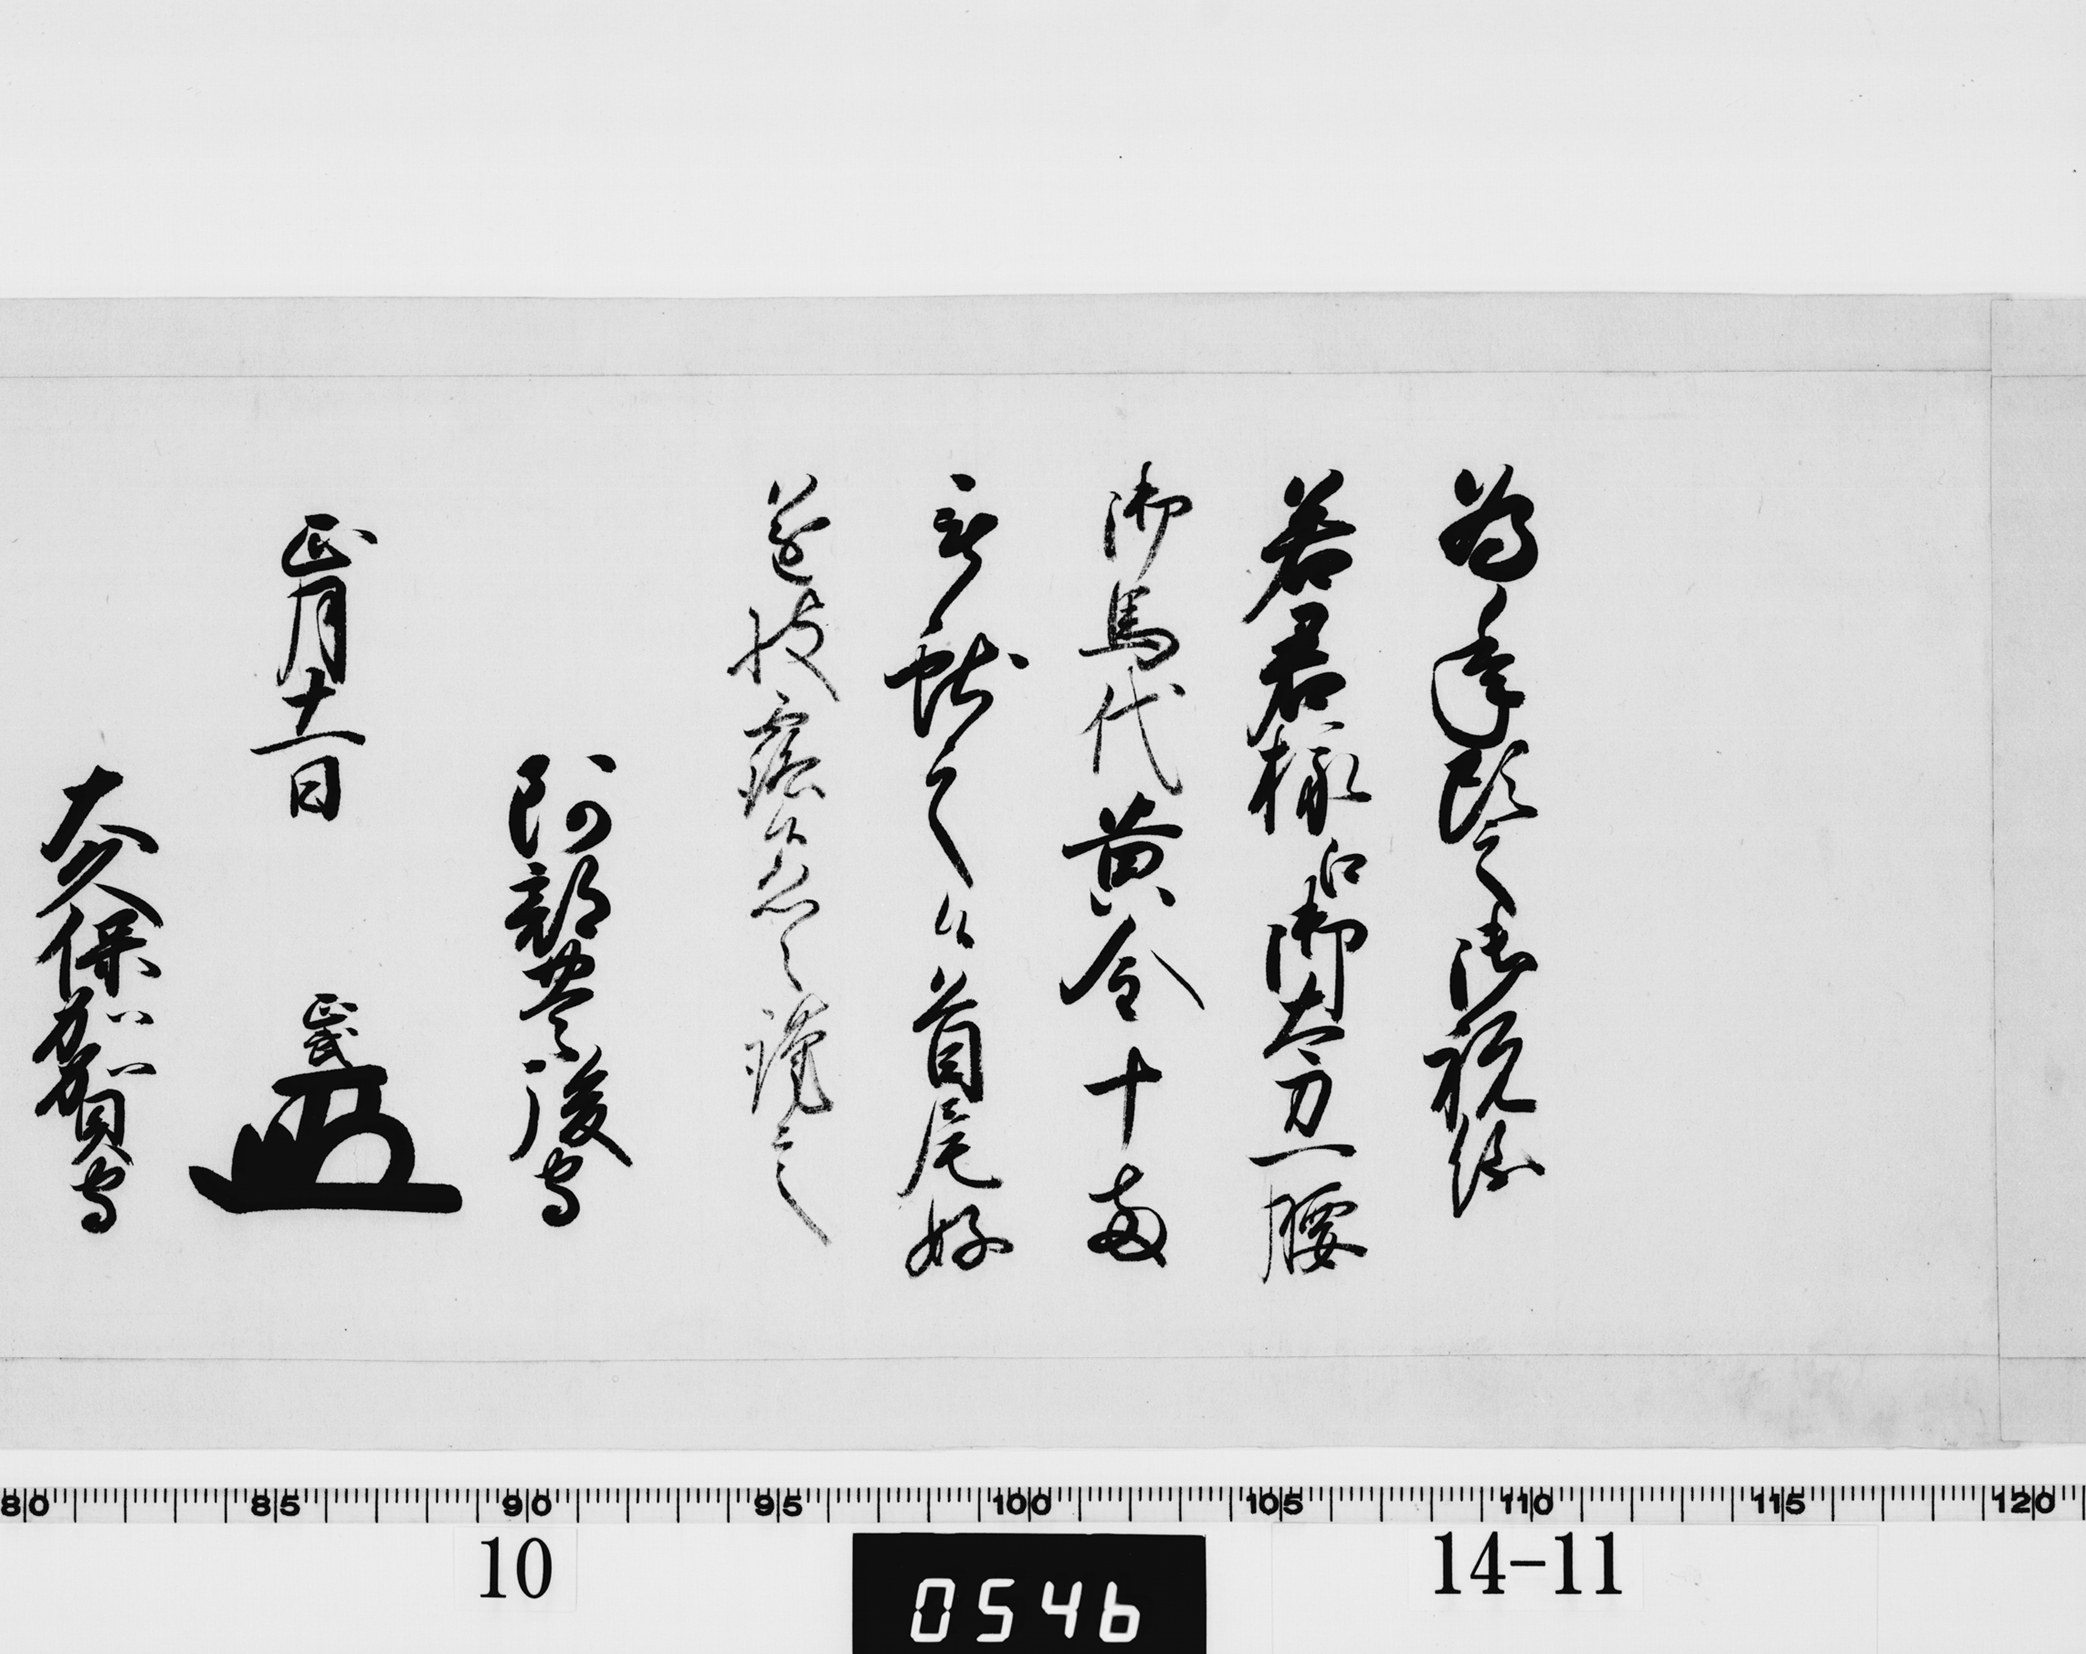 為年頭之御祝儀
若君様江御太刀一腰
御馬代黄金十両
被献之候首尾好
遂披露候恐々謹言
阿部豊後守
正月十一日 正武
大久保加賀守
80 85 90 95 100 105 110 115 120
10 0546 14-11